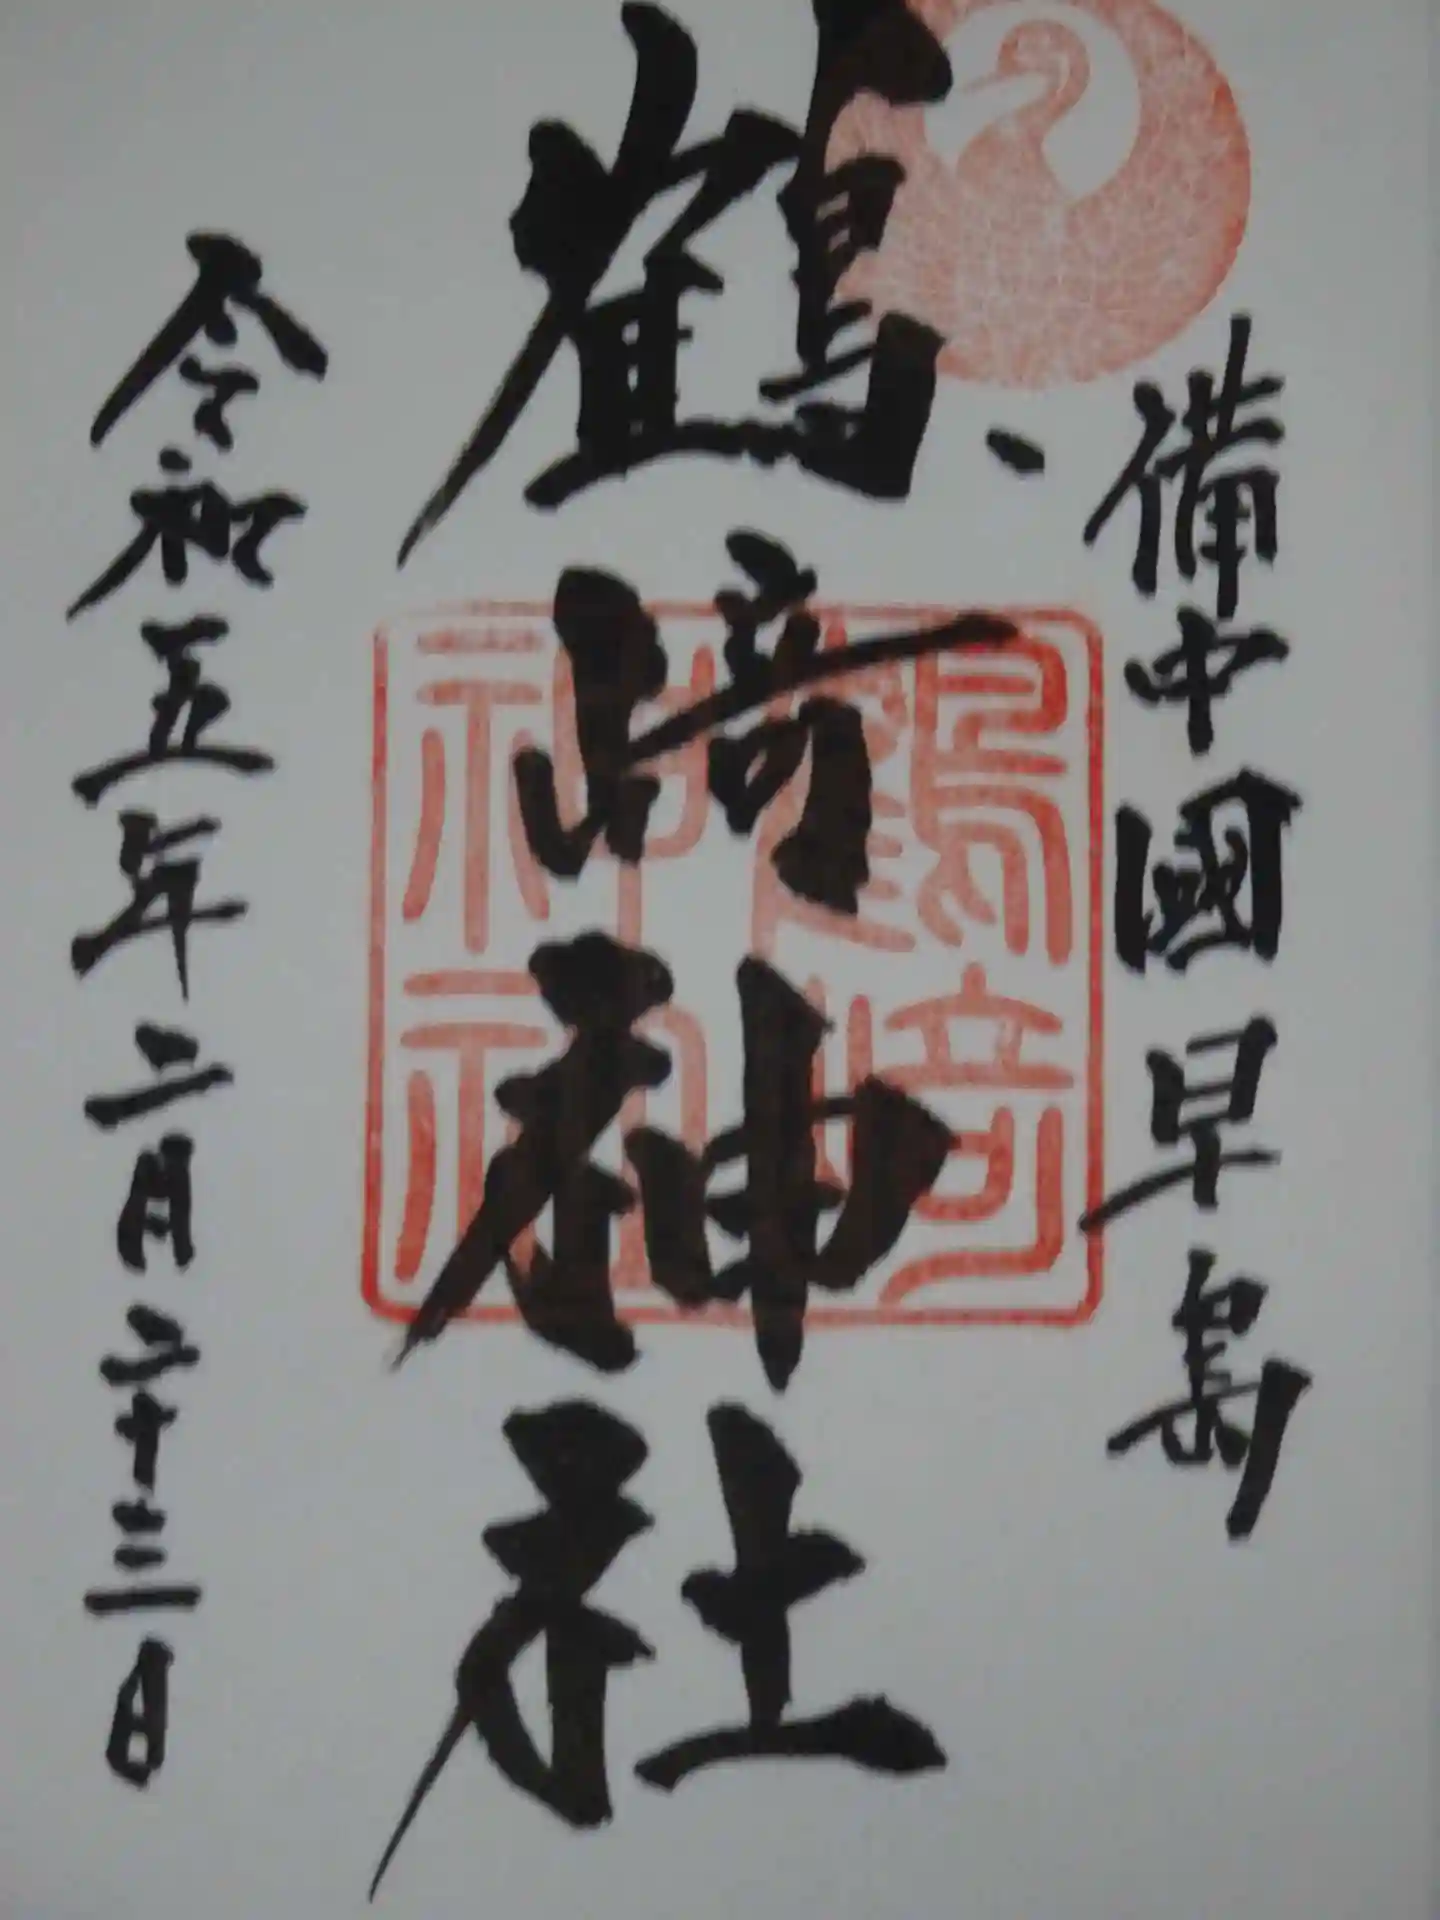 備中國早島
鶴﨑神社
鶴﨑
神社
令和五年二月二十三日